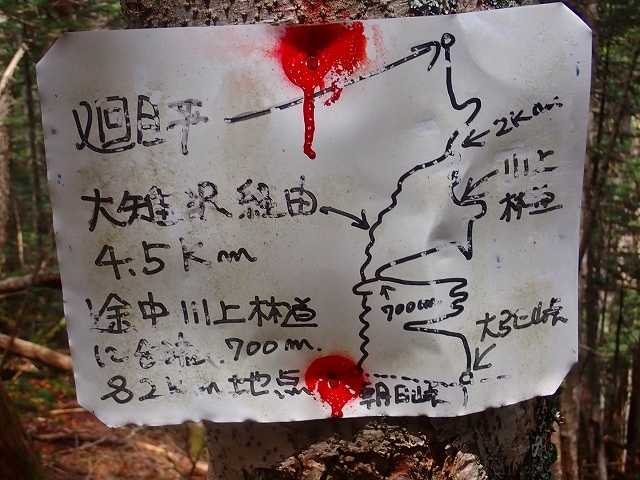 廻目平
大雉沢経由
4.5Km
途中川上林道
に合流、700m.
82Km地点
2Km
川上
林道
700m
大弛峠
朝日峠